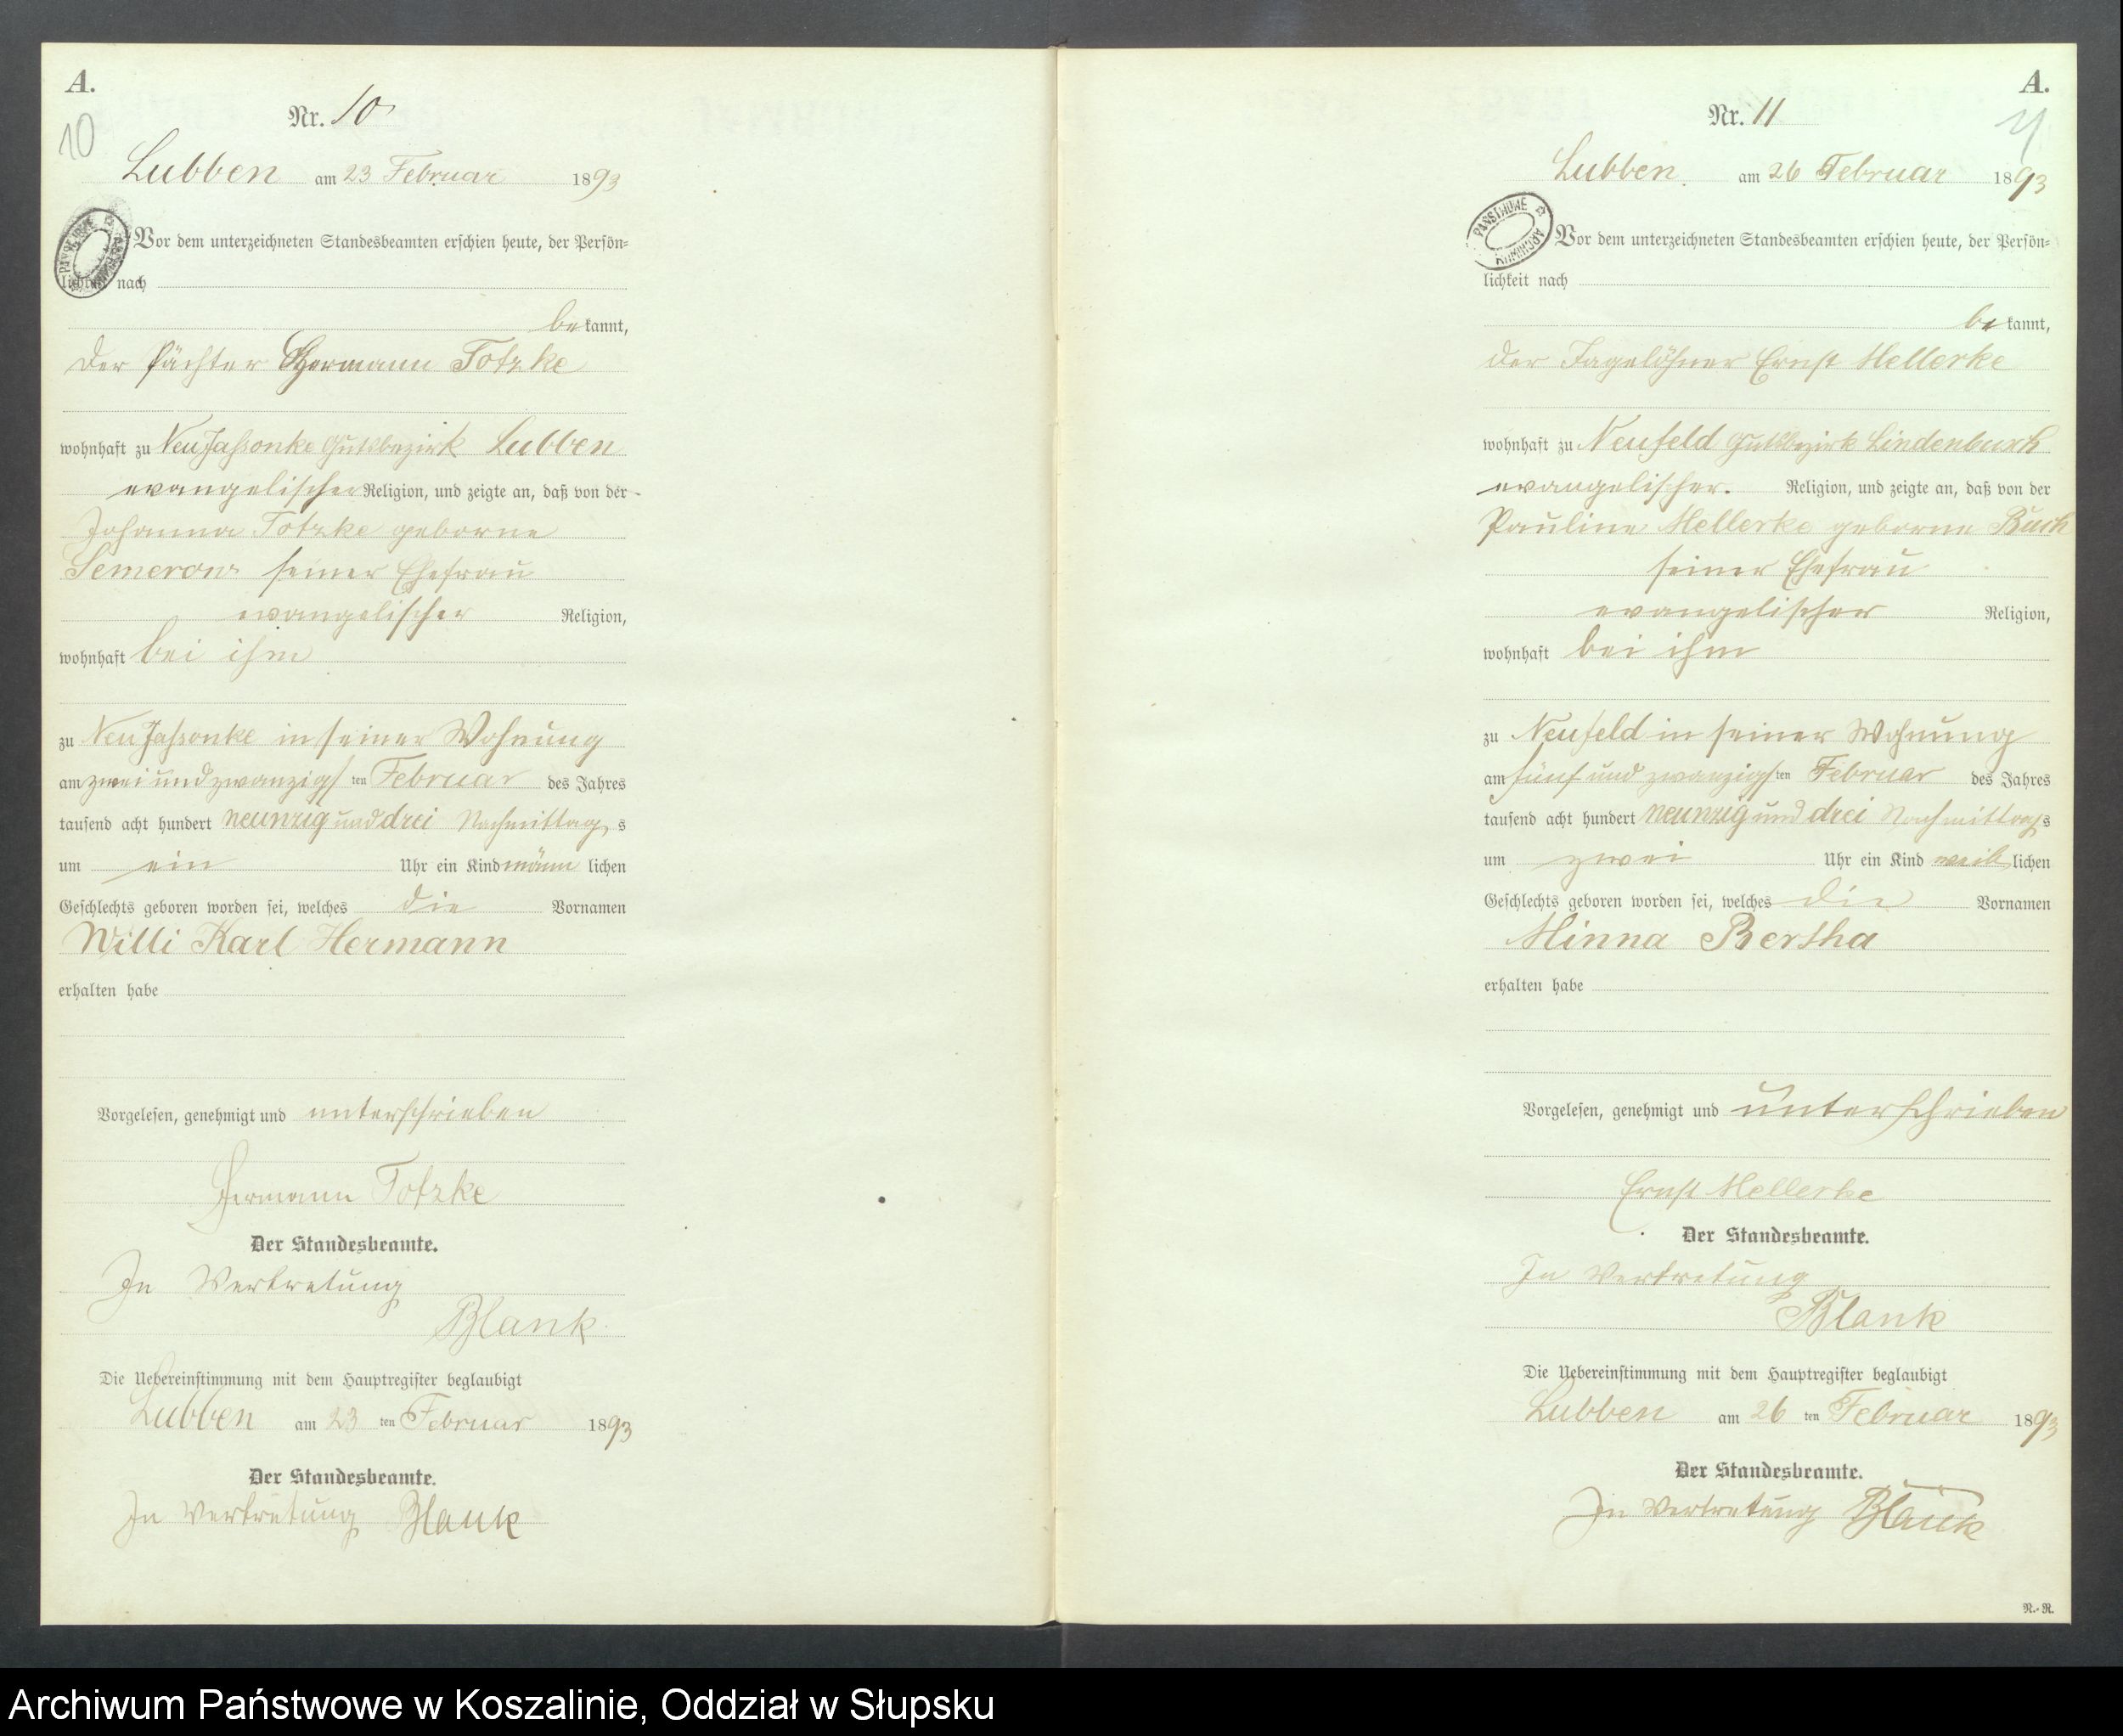 A.
Nr. 10
10
Lubben am 23 Februar 1893
Vor dem unterzeichneten Standesbeamten erschien heute, der Persön-
lichkeit nach
bekannt,
der Pächter Hermann Totzke
wohnhaft zu Neu Jassonke Gutsbezirk Lubben
evangelischer Religion, und zeigte an, daß von der
Johanna Totzke geborne
Semerow seiner Ehefrau
evangelischer Religion,
wohnhaft bei ihm
zu Neu Jassonke in seiner Wohnung
am zwei und zwanzigsten Februar des Jahres
tausend acht hundert neunzig und drei Nachmittags
um ein Uhr ein Kind männlichen
Geschlechts geboren worden sei, welches die Vornamen
Willi Karl Hermann
erhalten habe
Vorgelesen, genehmigt und unterschrieben
Hermann Totzke
Der Standesbeamte.
In Vertretung
Blank
Die Uebereinstimmung mit dem Hauptregister beglaubigt
Lubben am 23 ten Februar 1893
Der Standesbeamte.
In Vertretung Blank
A.
Nr. 11
11
Lubben am 26 Februar 1893
Vor dem unterzeichneten Standesbeamten erschien heute, der Persön-
lichkeit nach
bekannt,
der Tagelöhner Ernst Mellerke
wohnhaft zu Neufeld Gutsbezirk Lindenbusch
evangelischer Religion, und zeigte an, daß von der
Pauline Mellerke geborne Buch
seiner Ehefrau
evangelischer Religion,
wohnhaft bei ihm
zu Neufeld in seiner Wohnung
am fünf und zwanzigsten Februar des Jahres
tausend acht hundert neunzig und drei Nachmittags
um zwei Uhr ein Kind weiblichen
Geschlechts geboren worden sei, welches die Vornamen
Minna Bertha
erhalten habe
Vorgelesen, genehmigt und unterschrieben
Ernst Mellerke
Der Standesbeamte.
In Vertretung
Blank
Die Uebereinstimmung mit dem Hauptregister beglaubigt
Lubben am 26 ten Februar 1893
Der Standesbeamte.
In Vertretung Blank
N.-R.
Archiwum Państwowe w Koszalinie, Oddział w Słupsku